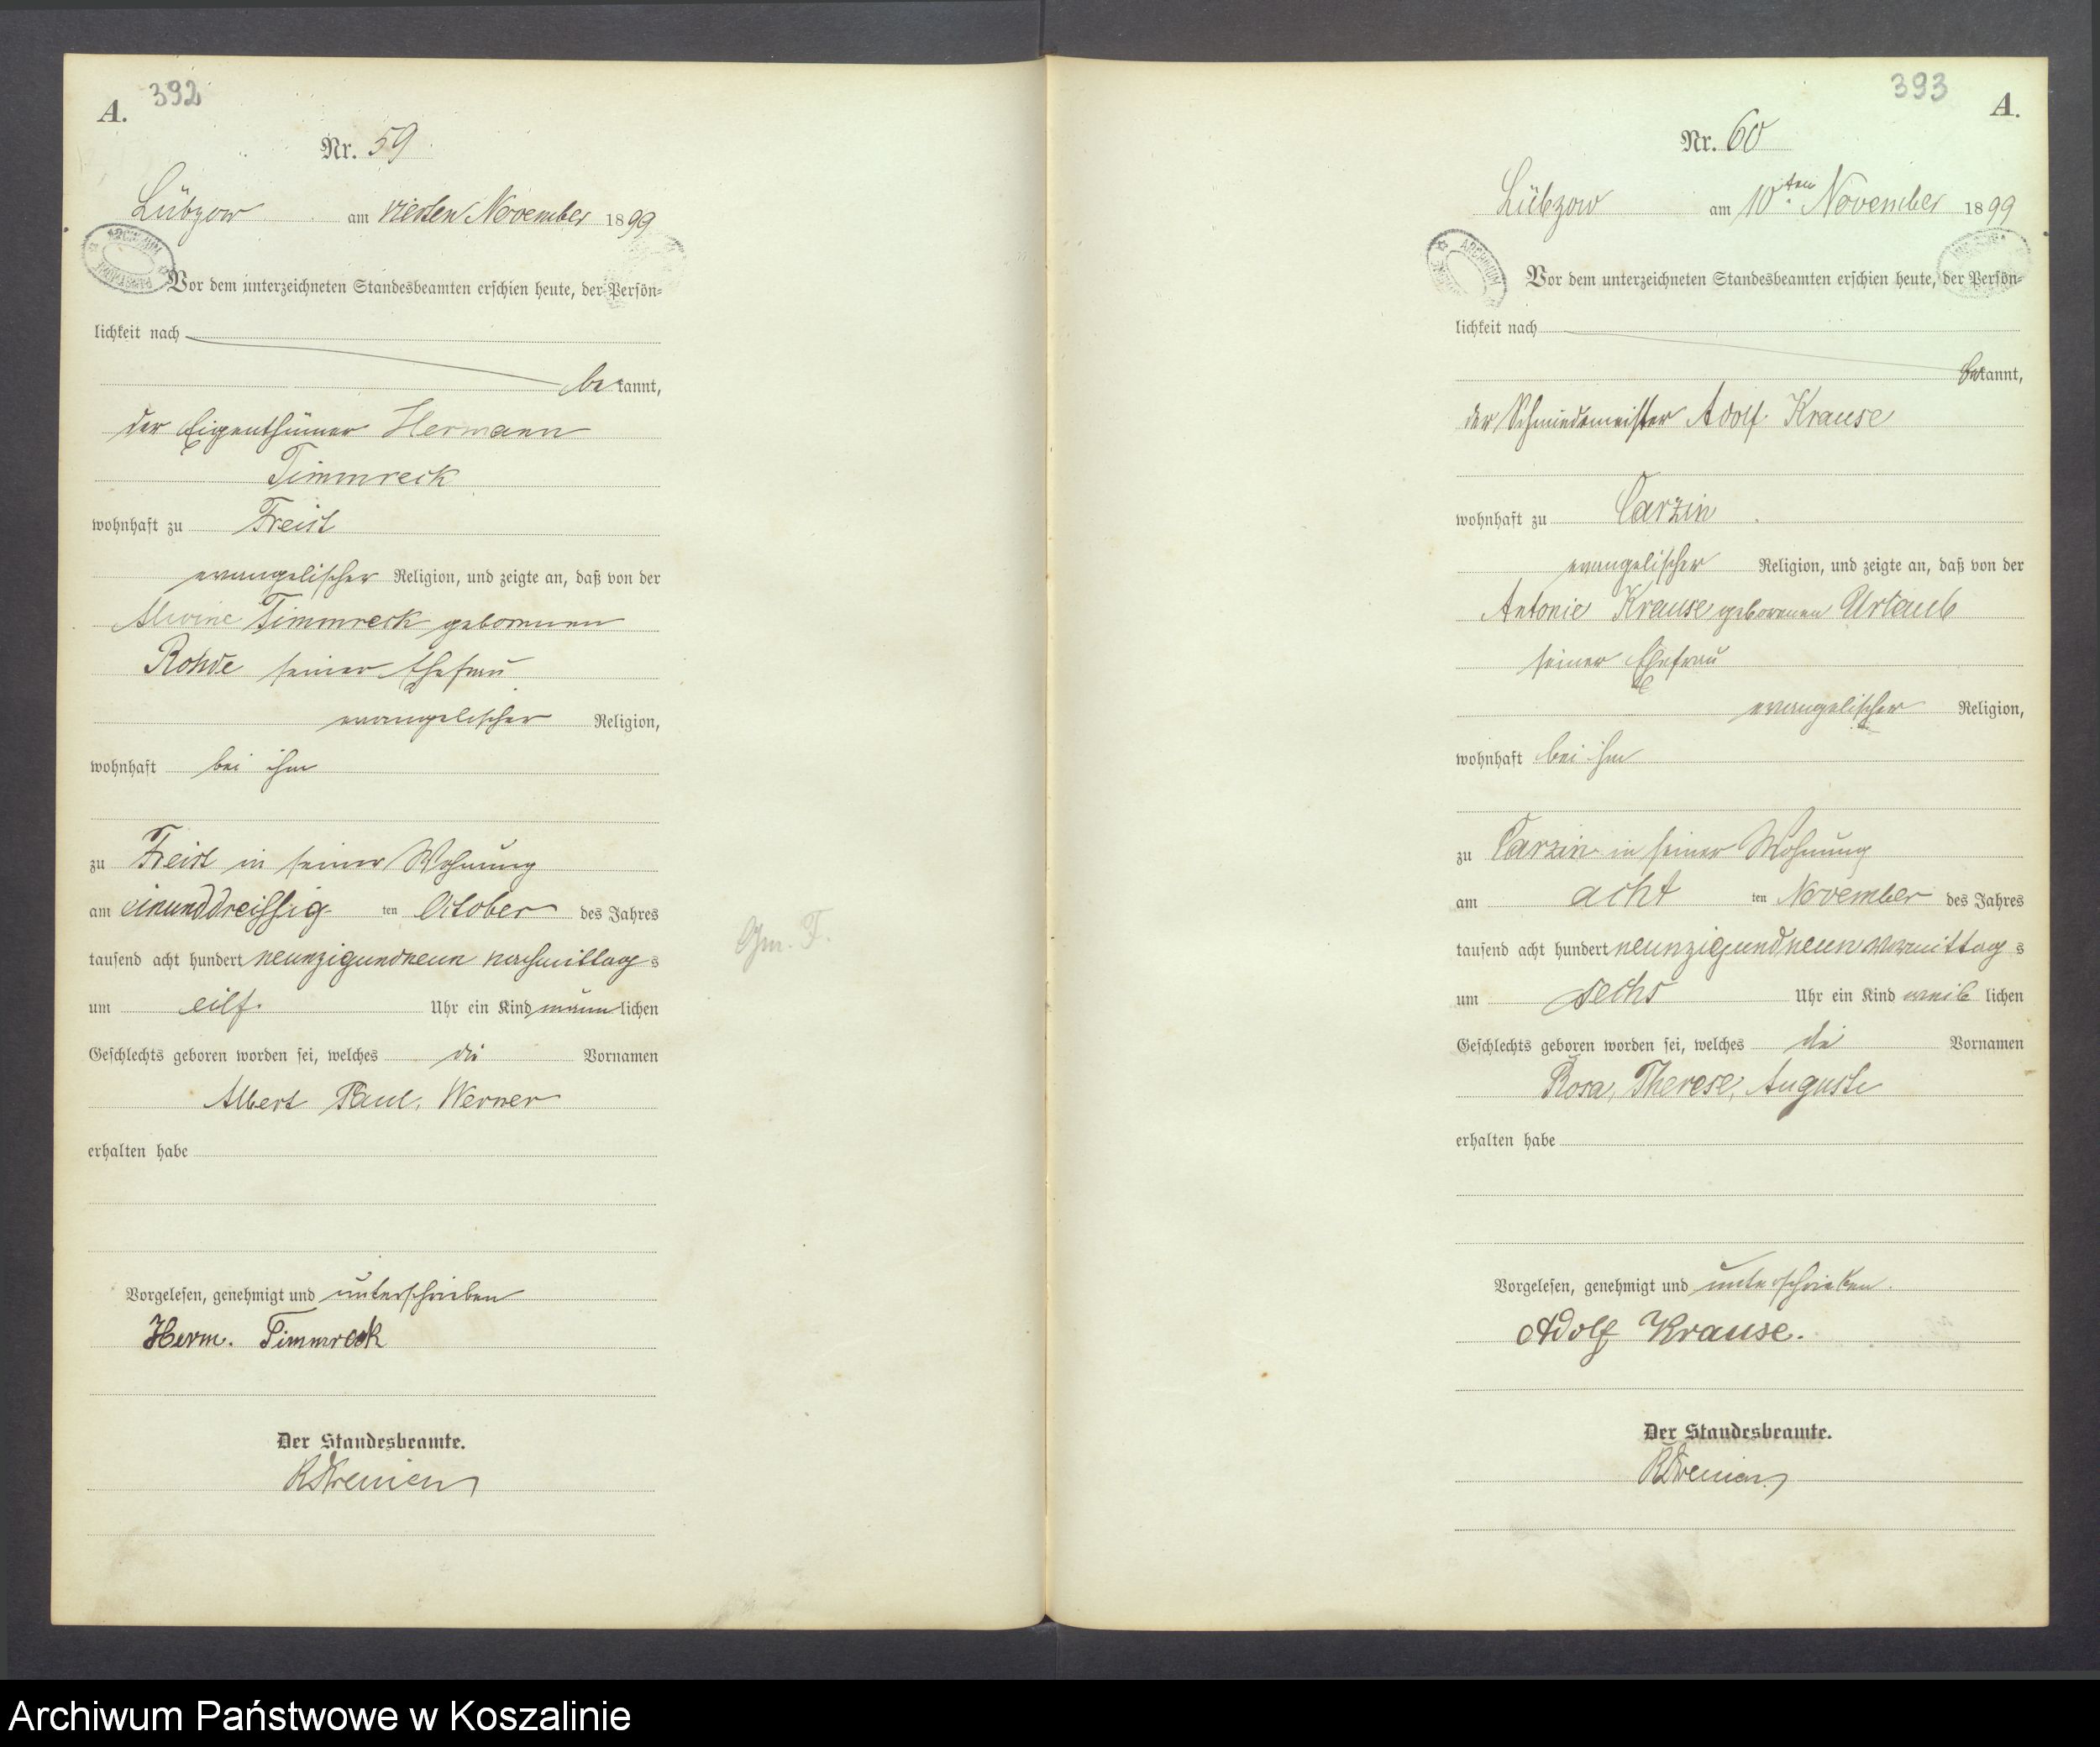 A.
392
Nr. 59
Lübzow am vierten November 1899
Vor dem unterzeichneten Standesbeamten erschien heute, der Persön-
lichkeit nach
bekannt,
der Eigenthümer Hermann
Timmreck
wohnhaft zu Freist
evangelischer Religion, und zeigte an, daß von der
Alwine Timmreck geborenen
Rohde seiner Ehefrau
evangelischer Religion,
wohnhaft bei ihm
zu Freist in seiner Wohnung
am einunddreissig ten October des Jahres
tausend acht hundert neunzigundneun nachmittags
um eilf. Uhr ein Kind männlichen
Geschlechts geboren worden sei, welches die Vornamen
Albert Paul, Werner
erhalten habe
Vorgelesen, genehmigt und unterschrieben
Herm. Timmreck
Der Standesbeamte.
Gm. F.
393
A.
Nr. 60
Lübzow am 10ten November 1899
ARCHIWUM
Vor dem unterzeichneten Standesbeamten erschien heute, der Persön-
lichkeit nach
bekannt,
der Schmiedemeister Adolf Krause
wohnhaft zu Carzin
evangelischer Religion, und zeigte an, daß von der
Antonie Krause geborenen Urlaub
seiner Ehefrau
evangelischer Religion,
wohnhaft bei ihm
zu Carzin in seiner Wohnung
am acht ten November des Jahres
tausend acht hundert neunzigundneun vormittags
um sechs Uhr ein Kind weiblichen
Geschlechts geboren worden sei, welches die Vornamen
Rosa, Therese, Auguste
erhalten habe
Vorgelesen, genehmigt und unterschrieben.
Adolf Krause.
Der Standesbeamte.
Archiwum Państwowe w Koszalinie